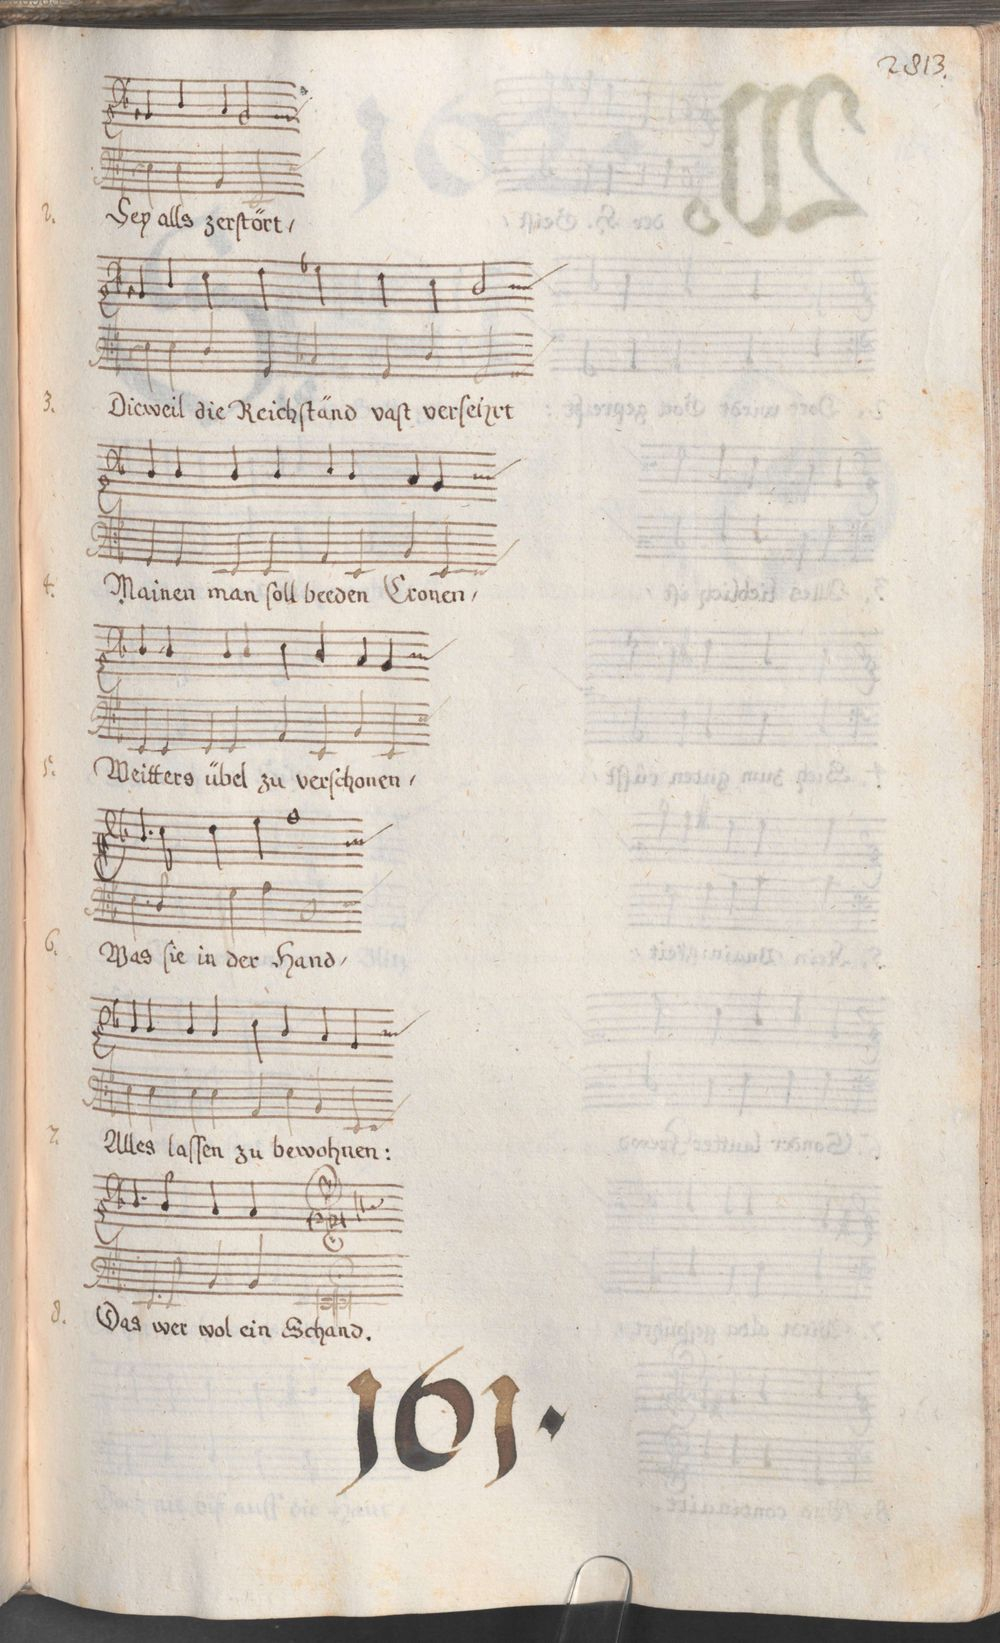 2813.
2. Sey alls zerstört,
3. Dieweil die Reichständ vast versehrt
4. Mainen man soll beeden Cronen,
5. Weitters übel zu verschonen,
6. Was sie in der Hand,
7. Alles lassen zu bewohnen:
8. Das wer wol ein Schand.
161.